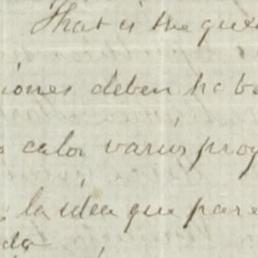 That is the ques
iones deben ha b
calor varios proy
la idea que pare
da